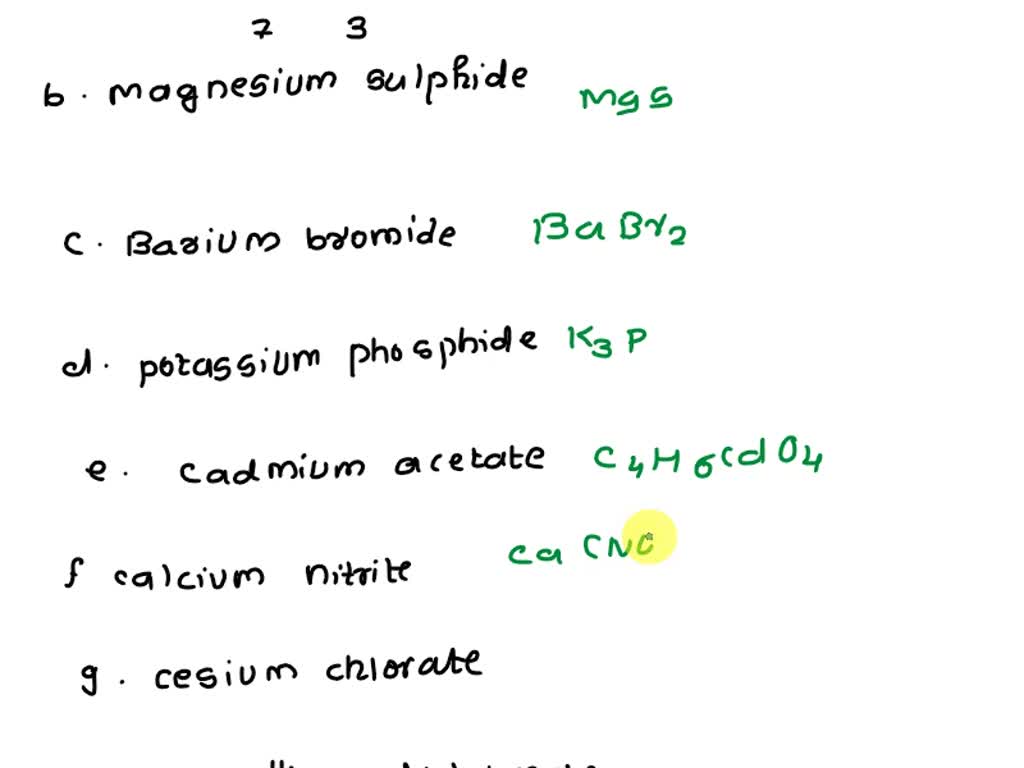 7 3
b. magnesium sulphide MgS
c. Barium bromide BaBr2
d. potassium phosphide K3P
e. cadmium acetate C4H6CdO4
f calcium nitrite ca (NO
g. cesium chlorate